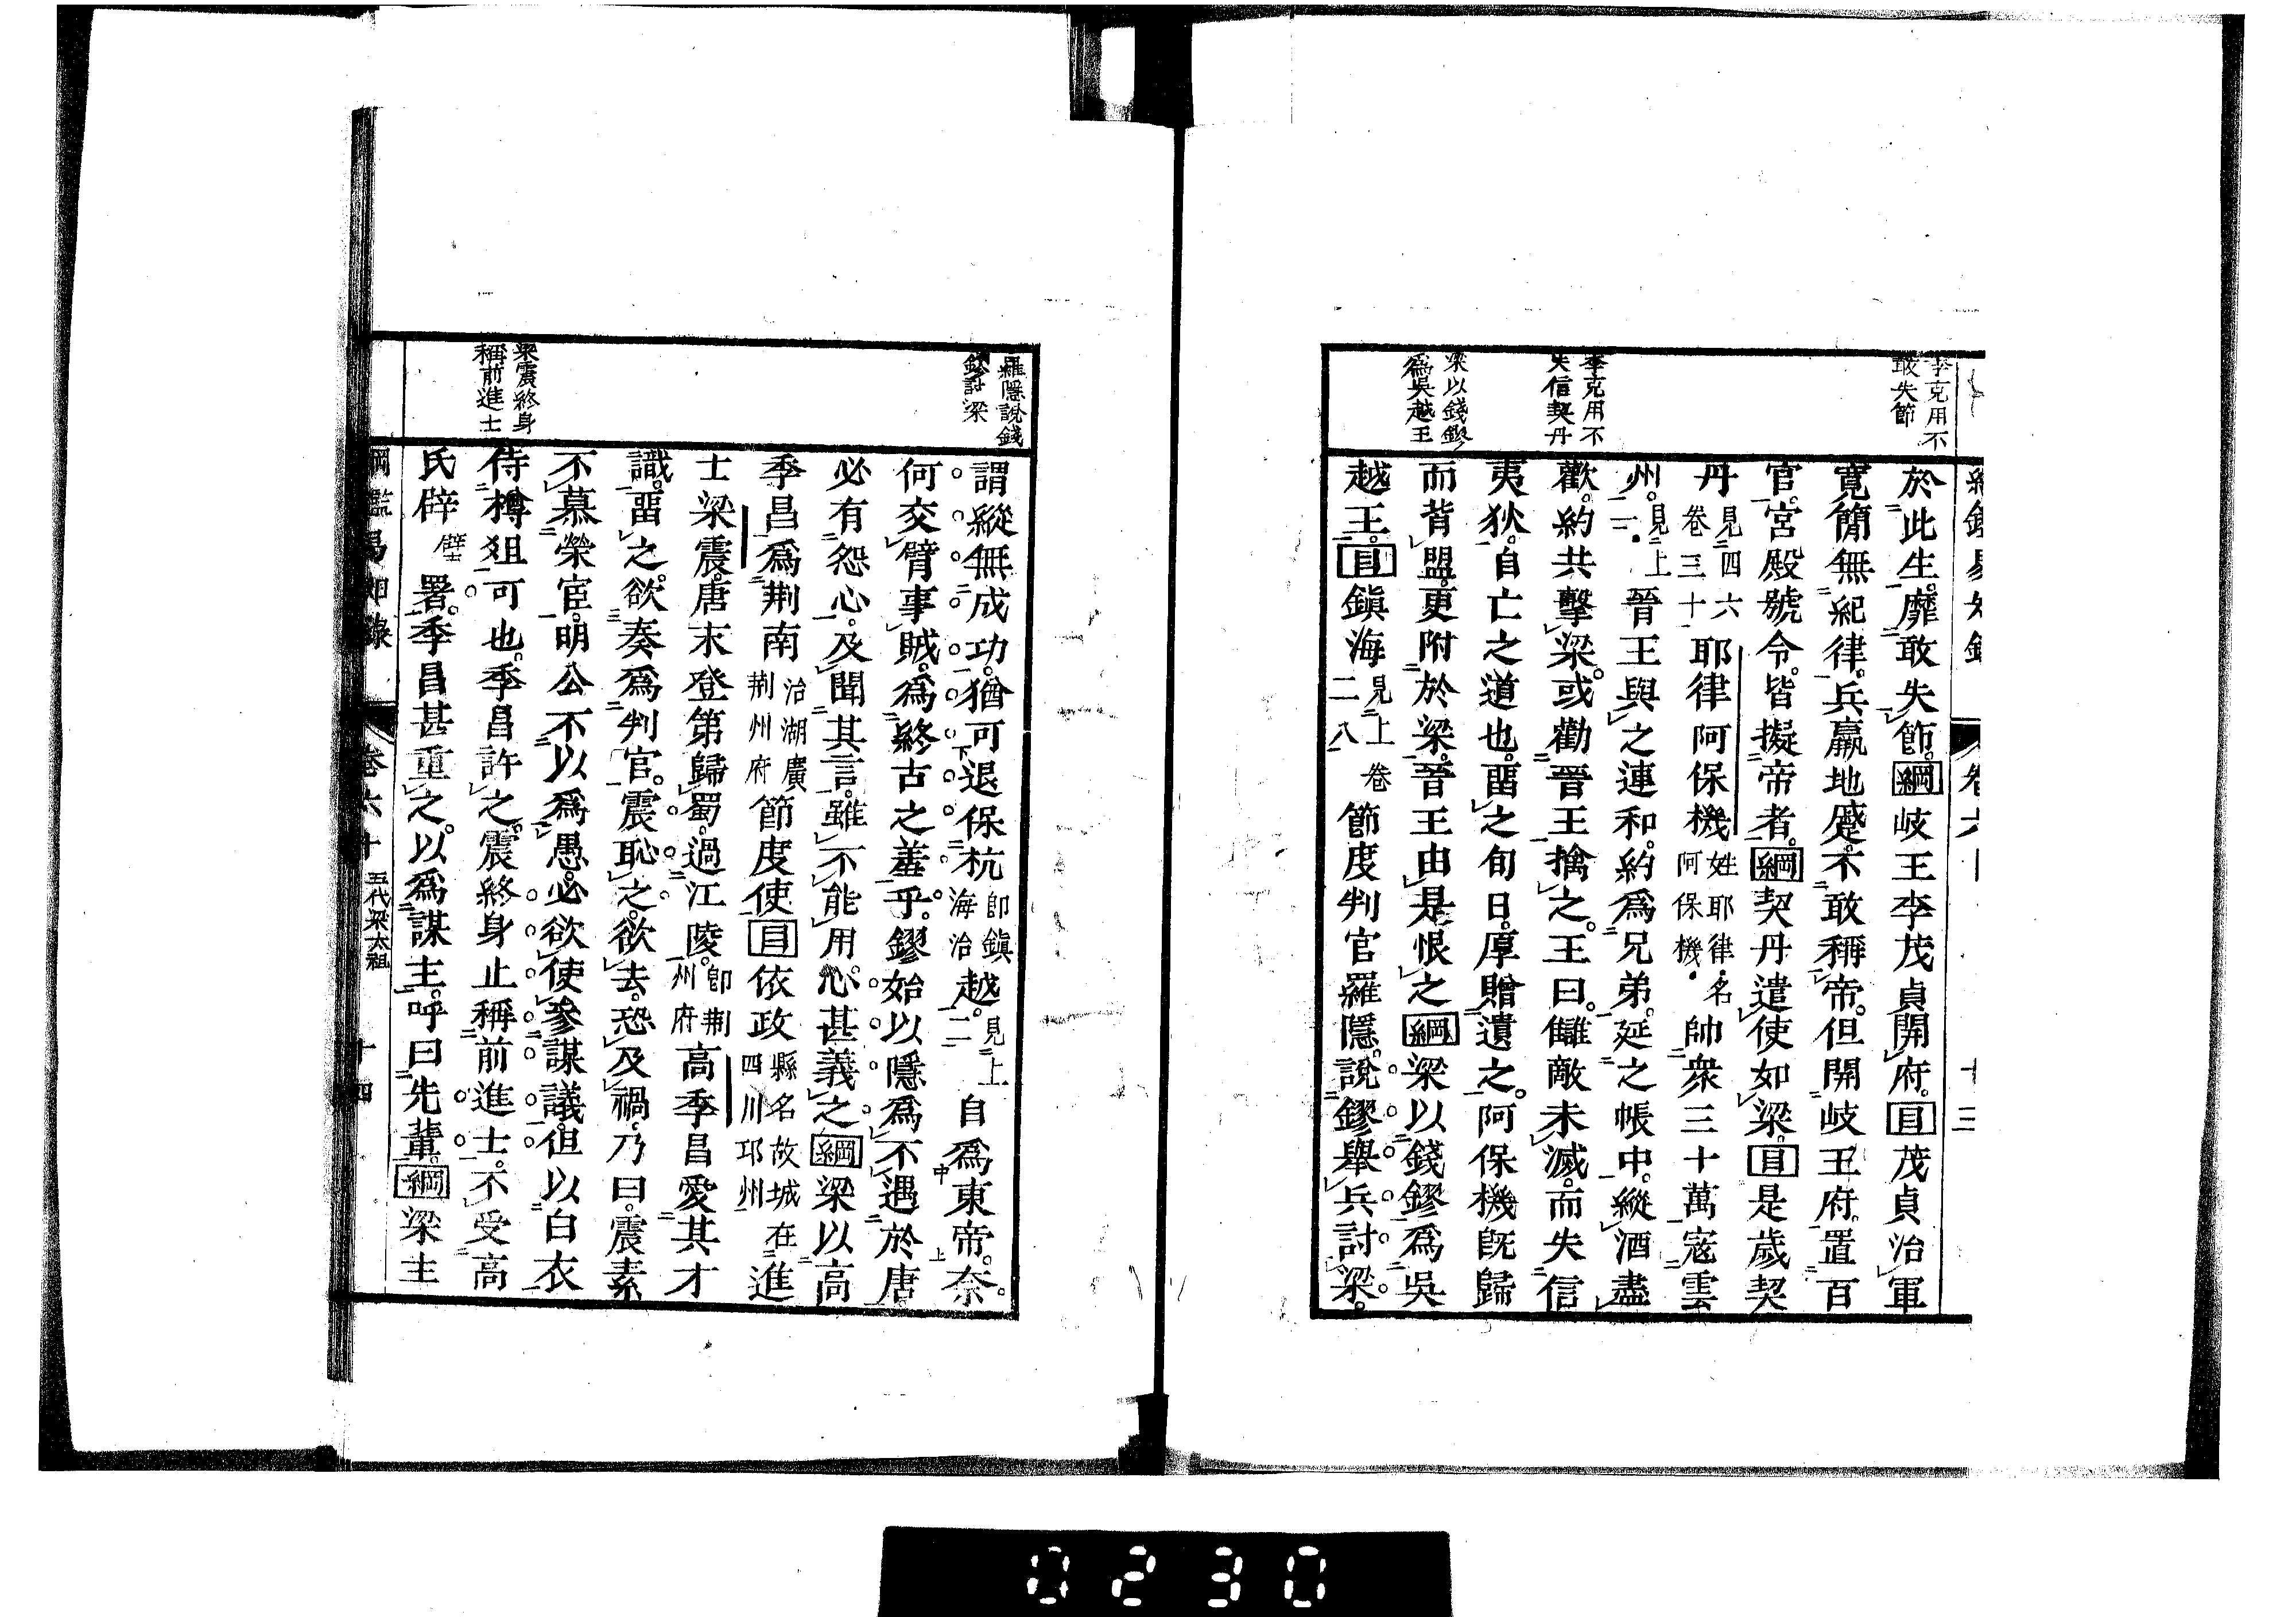 李克用不
敢失節
李克用不
失信契丹
梁以錢鏐
爲吳越王
於此生靡敢失節綱岐王李茂貞開府目茂貞治軍
寬簡無紀律兵羸地蹙不敢稱帝但開岐王府置百
官宮殿號令皆擬帝者綱契丹遣使如梁目是歲契
丹見四六卷三十一耶律阿保機姓耶律名阿保機帥衆三十萬寇雲
州見上二晉王與之連和約爲兄弟延之帳中縱酒盡
歡約共擊梁或勸晉王擒之王曰讎敵未滅而失信
夷狄自亡之道也畱之旬日厚贈遺之阿保機旣歸
而背盟更附於梁晉王由是恨之綱梁以錢鏐爲吳
越王目鎭海見上卷二八節度判官羅隱說鏐舉兵討梁
羅隱說錢
鏐討梁
梁震終身
稱前進士
謂縱無成功猶可退保杭卽鎭海治越見上二自爲東帝奈
何交臂事賊爲終古之羞乎鏐始以隱爲不遇於唐
必有怨心及聞其言雖不能用心甚義之綱梁以高
季昌爲荆南治湖廣荆州府節度使目依政縣名故城在四川邛州進
士梁震唐末登第歸蜀過江陵卽荆州府高季昌愛其才
識畱之欲奏爲判官震恥之欲去恐及禍乃曰震素
不慕榮宦明公不以爲愚必欲使參謀議但以白衣
侍樽俎可也季昌許之震終身止稱前進士不受高
氏辟壁署季昌甚重之以爲謀主呼曰先輩綱梁主
綱鑑易知錄 卷六十 五代梁太祖 十四
0230